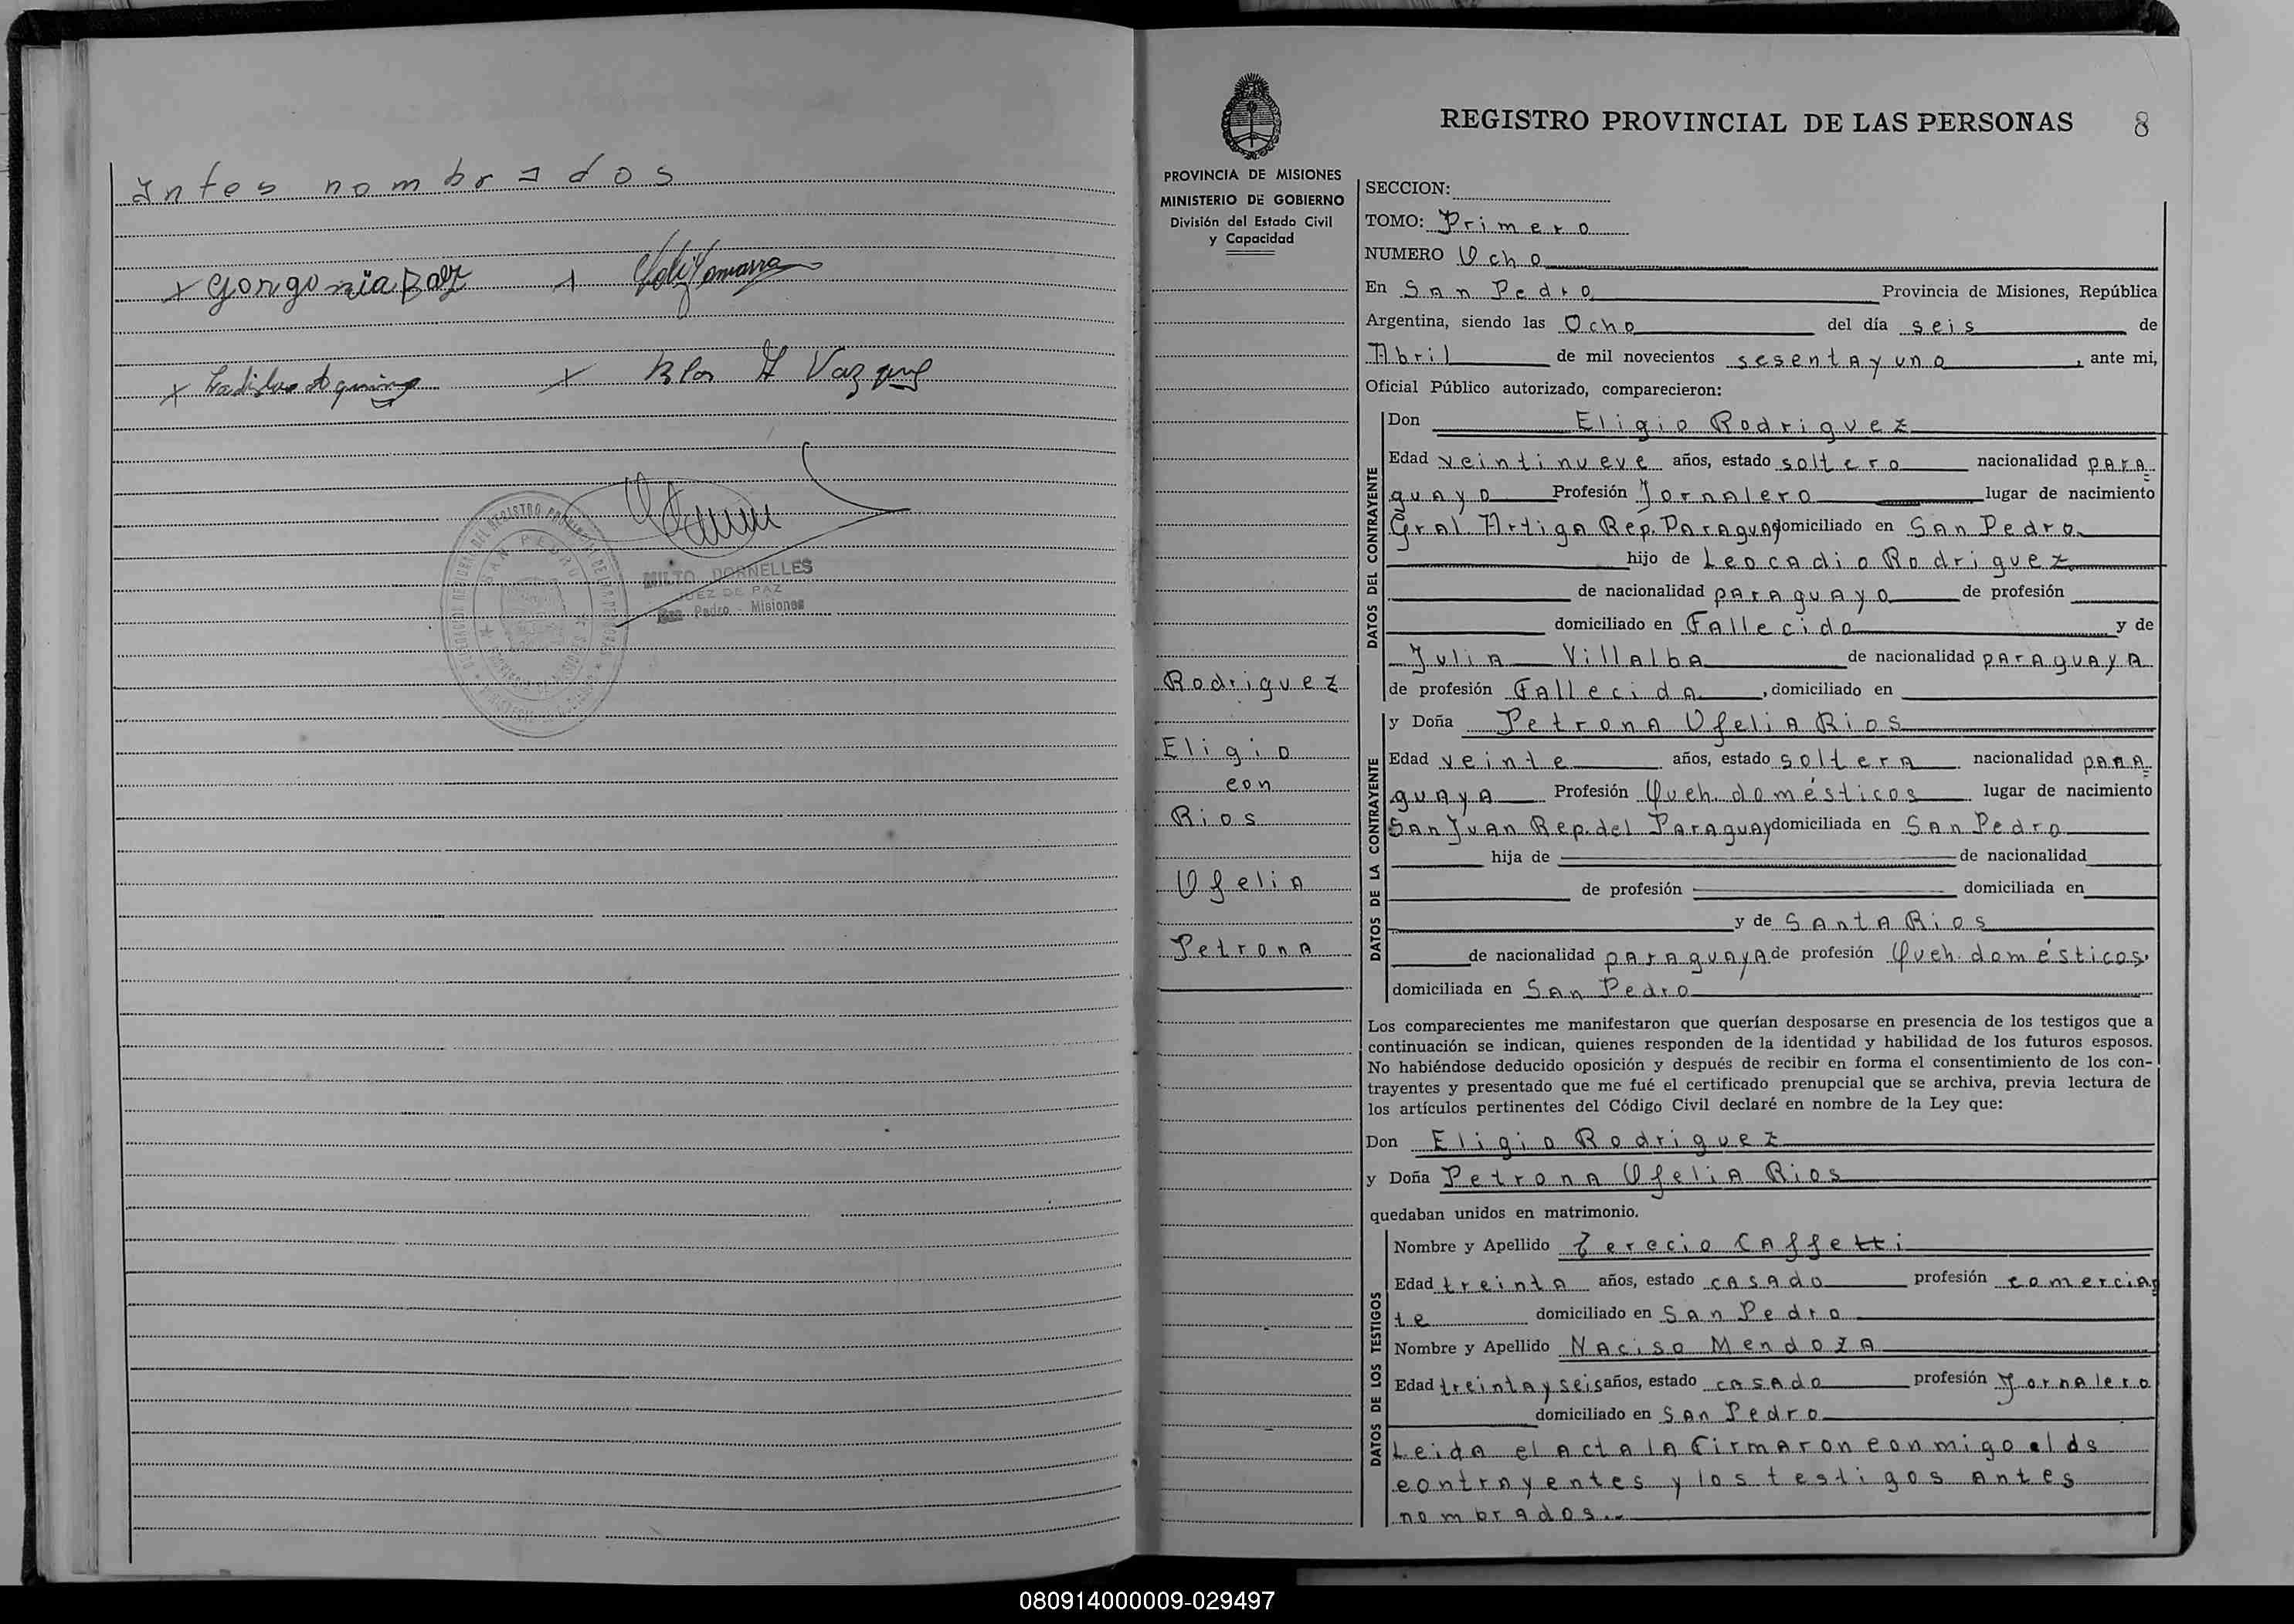 Antes nombrados
x Gorgonia Baez x
x Ladislao Aquino x Blas H Vazquez
SAN PEDRO
MILTO DORNELLES
JUEZ DE PAZ
San Pedro - Misiones
PROVINCIA DE MISIONES
MINISTERIO DE GOBIERNO
División del Estado Civil
y Capacidad
Rodriguez
Eligio
con
Rios
Ofelia
Petrona
REGISTRO PROVINCIAL DE LAS PERSONAS 8
SECCION:
TOMO: Primero
NUMERO Ocho
En San Pedro Provincia de Misiones, República
Argentina, siendo las Ocho del día seis de
Abril de mil novecientos sesenta y uno, ante mi,
Oficial Público autorizado, comparecieron:
DATOS DEL CONTRAYENTE
Don Eligio Rodriguez
Edad veintinueve años, estado soltero nacionalidad para=
guayo Profesión Jornalero lugar de nacimiento
Gral. Artiga Rep. Paraguay domiciliado en San Pedro
hijo de Leocadio Rodriguez
de nacionalidad paraguayo de profesión
domiciliado en Fallecido y de
Julia Villalba de nacionalidad paraguaya
de profesión Fallecida, domiciliado en
DATOS DE LA CONTRAYENTE
y Doña Petrona Ofelia Rios
Edad veinte años, estado soltera nacionalidad para=
guaya Profesión Queh. domésticos lugar de nacimiento
San Juan Rep. del Paraguay domiciliada en San Pedro
hija de de nacionalidad
de profesión domiciliada en
y de Santa Rios
de nacionalidad paraguaya de profesión Queh. domésticos,
domiciliada en San Pedro
Los comparecientes me manifestaron que querían desposarse en presencia de los testigos que a
continuación se indican, quienes responden de la identidad y habilidad de los futuros esposos.
No habiéndose deducido oposición y después de recibir en forma el consentimiento de los con-
trayentes y presentado que me fué el certificado prenupcial que se archiva, previa lectura de
los artículos pertinentes del Código Civil declaré en nombre de la Ley que:
Don Eligio Rodriguez
y Doña Petrona Ofelia Rios
quedaban unidos en matrimonio.
DATOS DE LOS TESTIGOS
Nombre y Apellido Terecio Caffetti
Edad treinta años, estado casado profesión comercian
te domiciliado en San Pedro
Nombre y Apellido Naciso Mendoza
Edad treinta y seis años, estado casado profesión Jornalero
domiciliado en San Pedro
Leida el acta la firmaron conmigo los
contrayentes y los testigos antes
nombrados..
080914000009-029497